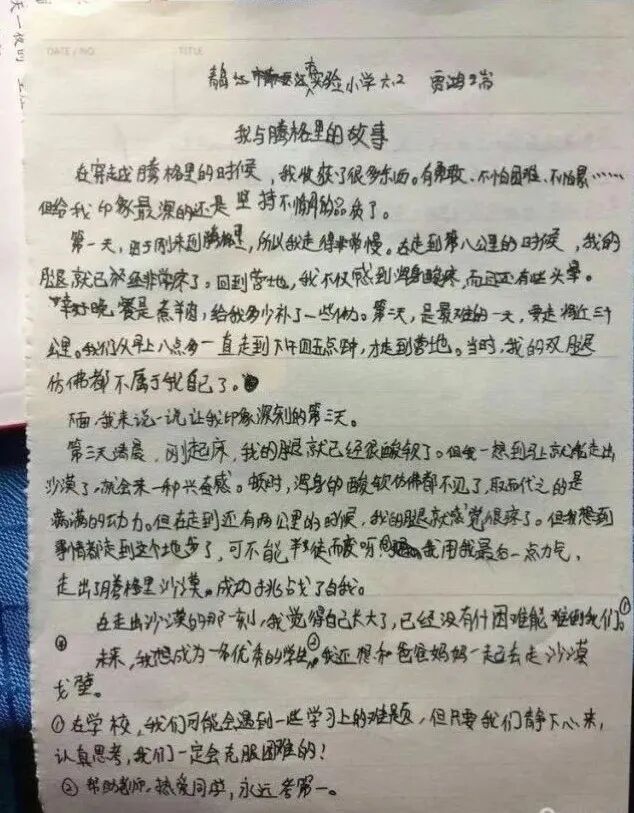 DATE / NO
TITLE
靖江市实验小学六.2 贾鸿
我与腾格里的故事
在穿越腾格里的时候，我收获了很多东西。有勇敢、不怕困难、不怕累……
但给我印象最深的还是坚持不懈的品质了。
第一天，由于刚来到腾格里，所以我走得非常慢。在走到第八公里的时候，我的
腿就已经非常疼了。回到营地，我不仅感到浑身酸疼，而且还有些头晕。
幸好晚餐是煮羊肉，给我多少补了一些体力。第二天，是最难的一天，要走将近三十
公里。我们从早上八点多一直走到下午四五点钟，才走到营地。当时，我的双腿
仿佛都不属于我自己了。
下面，我来说一说让我印象深刻的第三天。
第三天清晨，刚起床，我的腿就已经很酸软了。但我一想到马上就能走出
沙漠了，就会来一种兴奋感。顿时，浑身的酸软仿佛都不见了，取而代之的是
满满的动力。但在走到还有两公里的时候，我的腿就感觉很疼了。但我想到
事情都走到这个地步了，可不能半途而废呀！我用我最后一点力气，
走出了腾格里沙漠。成功挑战了自我。
在走出沙漠的那一刻，我觉得自己长大了，已经没有什困难能难倒我们。①
未来，我想成为一名优秀的学生②。我还想和爸爸妈妈一起去走沙漠
戈壁。
①在学校，我们可能会遇到一些学习上的难题，但只要我们静下心来，
认真思考，我们一定会克服困难的！
②帮助老师、热爱同学，永远考第一。